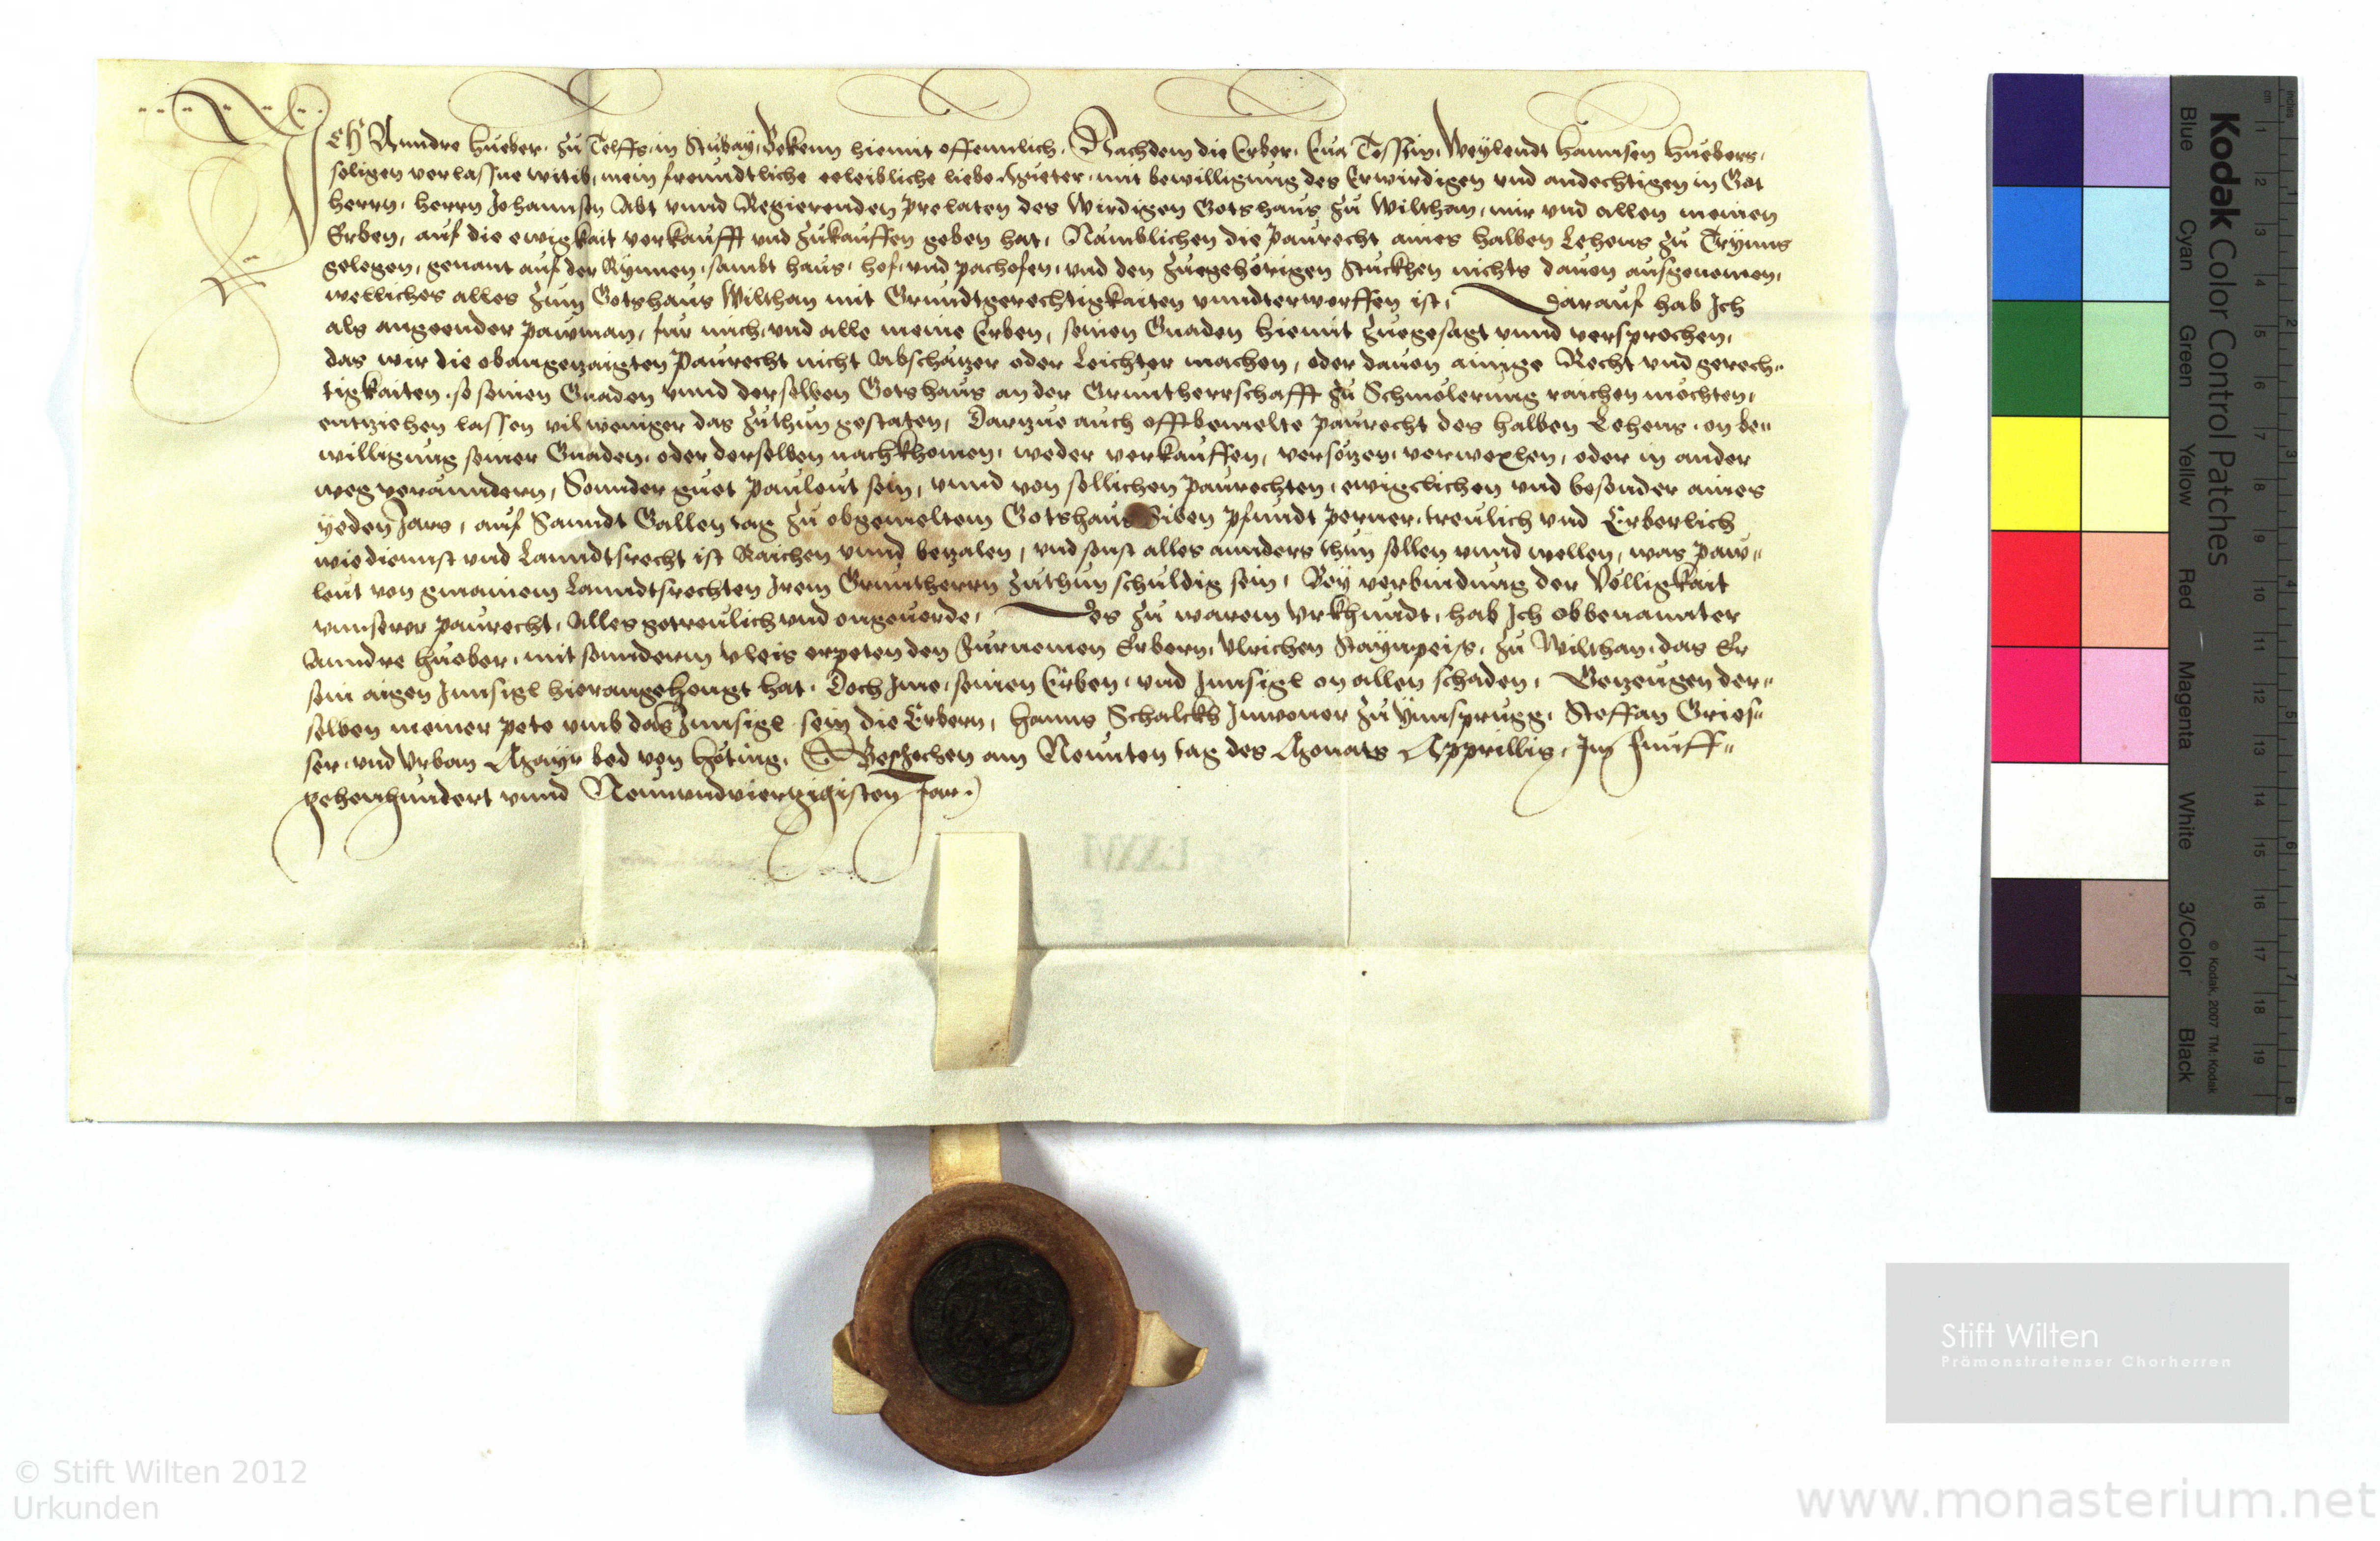 Ich Anndre Hueber, zu Telffs, in Stubay, Bekenn hiemit offennlich, Nachdem die Erber, Eua Tessin, Weylendt Hannsen Huebers,
seligen verlassne witib, mein freundtliche eeleibliche liebe Mueter, mit bewilligung des Erwirdigen vnd andechtigen in Got
herrn, herrn Johannsen Abt vnnd Regierenden prelaten des Wirdigen Gotshaus zu Wilthan, mir vnd allen meinen
Erben, auf die ewigkait verkaufft vnd zukauffen geben hat, Namblichen die paurecht aines halben Lehens zu Trynns
gelegen, genant auf der Rynnen, sambt haus, hof, vnd pachofen, vnd den zuegehörigen Stuckhen nichts dauon ausgenomen,
welliches alles zum Gotshaus Wilthan mit Grundtgerechtigkaiten vnndterworffen ist, Darauf hab Ich
als angeender pawman, für mich, vnd alle meine Erben, seinen Gnaden hiemit zuegesagt vnnd versprochen,
das wir die obangezaigten paurecht nicht Abschätzer oder Leichter machen, oder dauon ainige Recht vnd gerech-
tigkaiten, so seinen Gnaden vnnd derselben Gotshaus an der Gruntherrschafft zu Schmelerung raichen möchten,
entziehen lassen vil weniger das zuthun gestaten, Darzue auch offtbemelte paurecht des halben Lehens, on be-
willigung seiner Gnaden, oder derselben nachkhomen, weder verkauffen, versetzen, verwexlen, oder in ander
weg veränndern, Sonnder guet pauleut sein, vnnd von sollichen paurechten, ewigclichen vnd besonder aines
yeden Jars, auf Sanndt Gallen tag zu obgemeltem Gotshaus Siben pfundt perner, treulich vnd Erberlich
wie diennst vnd Lanndtsrecht ist Raichen vnnd bezalen, vnd sonst alles annders thun sollen vnnd wellen, was paw-
leut von gmainem Lanndtsrechten Irem Gruntherrn zuthun schuldig sein, Bey verbindung der Völligkait
vnnserer paurecht, Alles getreulich vnd ongeuerde, Des zu warem Vrkhundt, hab Ich obbenannter
Anndre Hueber, mit sonnderm vleis erpeten den Fürnemen Erbern, Vlrichen Staynpeiß, zu Wilthan, das Er
sein aigen Innsigl hierangehengt hat, Doch Ime, seinen Erben, vnd Innsigl on allen schaden, Getzeugen der-
selben meiner pete vmb das Innsigl sein die Erbern, Hanns Schalckh Innwoner zu Ynnsprugg, Steffan Gries-
ser, vnd Vrban Mayr bed von Höting, Beschehen am Neunten tag des Monats Apprillis, Im Funff-
zehenhundert vnnd Neunvndviertzigisten Jar.
LXXVI
Kodak Color Control Patches
Blue Cyan Green Yellow Red Magenta White 3/Color Black
© Kodak, 2007 TM: Kodak
cm 1 2 3 4 5 6 7 8 9 10 11 12 13 14 15 16 17 18 19
inches 1 2 3 4 5 6 7 8
Stift Wilten
Prämonstratenser Chorherren
© Stift Wilten 2012
Urkunden
www.monasterium.net